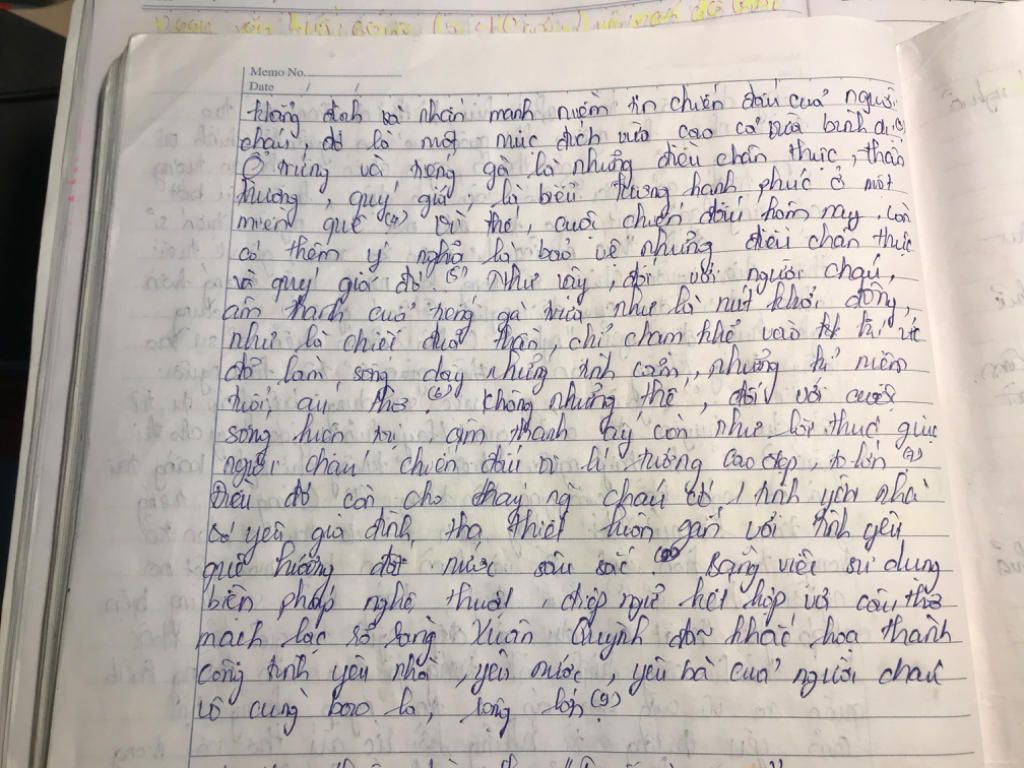 Memo No.
Date / /
khẳng định và nhấn mạnh niềm tin chiến đấu của người
cháu, đó là một mục đích vừa cao cả vừa bình dị (3)
Ổ trứng và tiếng gà là những điều chân thực, thân
thương, quý giá, là biểu tượng hạnh phúc ở một
miền quê (4) Vì thế, cuôc chiến đấu hôm nay còn
có thêm ý nghĩa là bảo vệ những điều chân thực
và quý giá đó (5) Như vậy, đối với người cháu,
âm thanh của tiếng gà trưa như là nút khởi động,
như là chiếc đũa thần, chỉ chạm khẽ vào kí ức
đã làm sống dậy những tình cảm, những kỉ niệm
tuổi ấu thơ (6) Chông những thế, đối với cuộc
sống hiện tại âm thanh ấy còn như lời thúc giục
người cháu chiến đấu vì lí tưởng cao đẹp, to lớn (7)
Điều đó còn cho thấy ng cháu có 1 tình yêu nhà
có yêu gia đình, tha thiết luôn gắn với tình yêu
quê hương đất nước sâu sắc (8) Bằng việc sử dụng
biện pháp nghệ thuật, điệp ngữ kết hợp với câu thơ
mạch lạc Xuân Quỳnh đã khắc hoạ thành
công tình yêu nhà, yêu nước, yêu bà của người cháu
vô cùng bao la, rộng lớn (9)